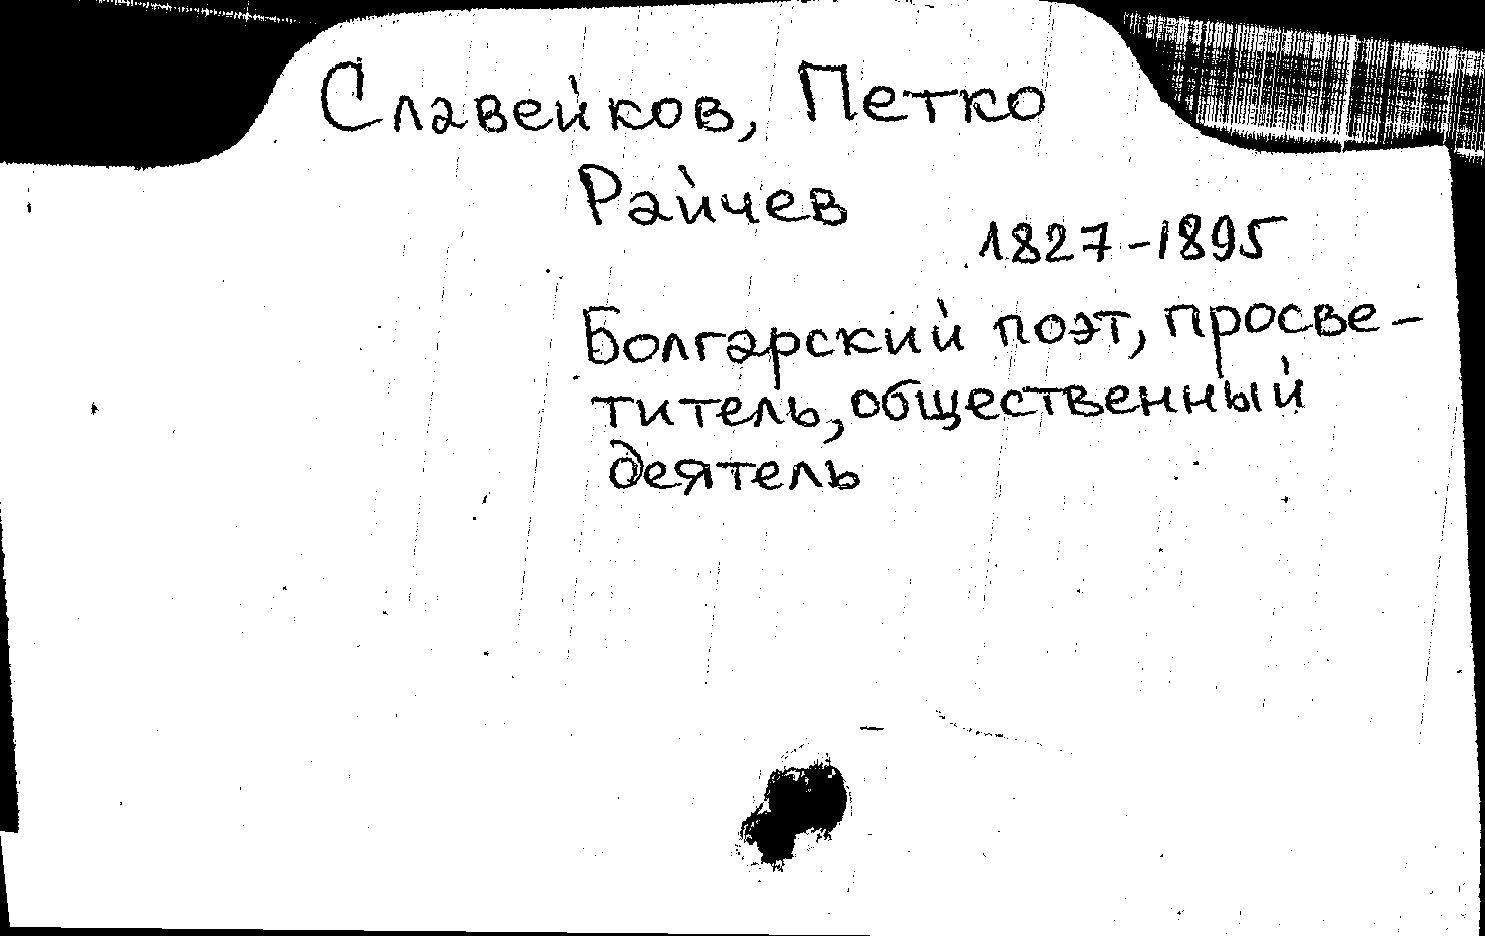 Славейков, Петко
Райчев
1827-1895
Болгарский поэт, просве-
титель, общественный
деятель